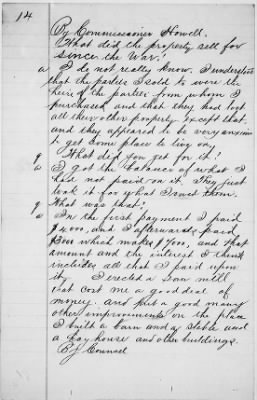 14
By Commissioner Howell.
What did the property sell for
since the War?
a I do not really know. I understood
that the parties I sold to were the
heirs of the parties from whom I
purchased and that they had lost
all their other property except that
and they appeared to be very anxious
to get some place to live on
q What did you get for it?
a I got the balance of what I
had not paid on it. They just
took it for what I owed them.
q What was that?
a In the first payment I paid
$4000, and I afterwards paid
$3000 which makes $7000, and that
amount and the interest I think
includes all that I paid upon
it. I erected a saw mill
that cost me a good deal of
money. and put a good many
other improvements on the place
I built a barn and a stable and
a gay house and other buildings.
By Counsel